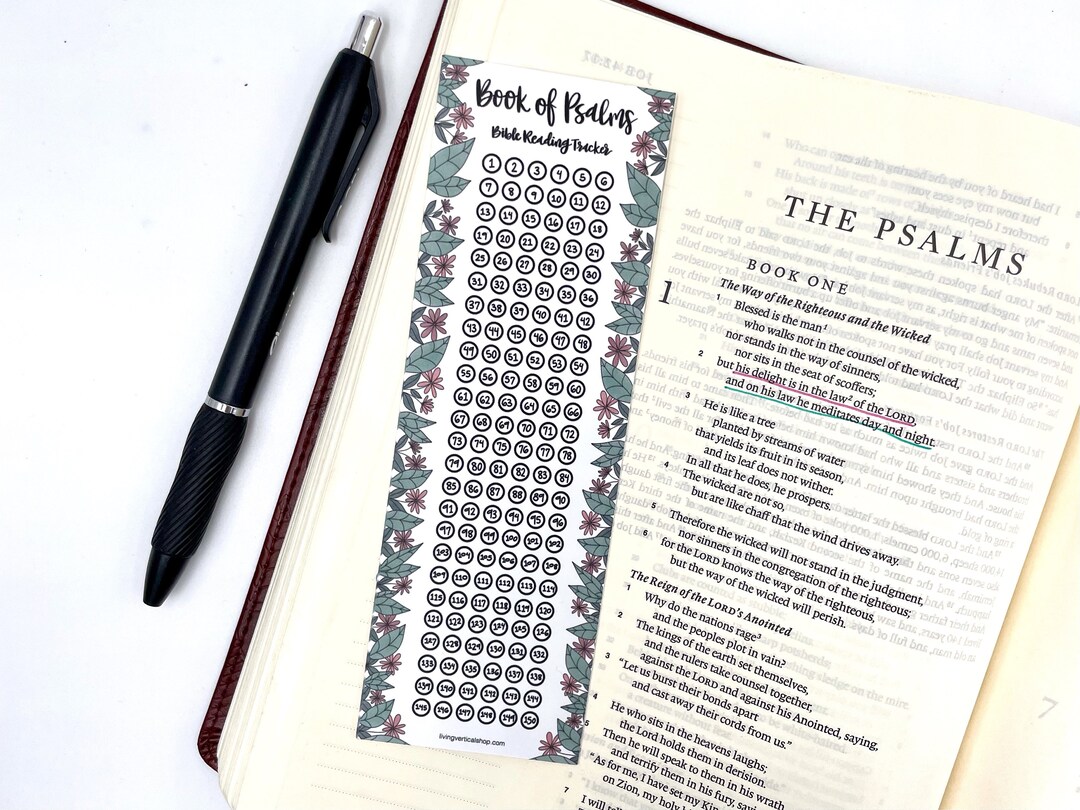 Book of Psalms
Bible Reading Tracker
1 2 3 4 5 6
7 8 9 10 11 12
13 14 15 16 17 18
19 20 21 22 23 24
25 26 27 28 29 30
31 32 33 34 35 36
37 38 39 40 41 42
43 44 45 46 47 48
49 50 51 52 53 54
55 56 57 58 59 60
61 62 63 64 65 66
67 68 69 70 71 72
73 74 75 76 77 78
79 80 81 82 83 84
85 86 87 88 89 90
91 92 93 94 95 96
97 98 99 100 101 102
103 104 105 106 107 108
109 110 111 112 113 114
115 116 117 118 119 120
121 122 123 124 125 126
127 128 129 130 131 132
133 134 135 136 137 138
139 140 141 142 143 144
145 146 147 148 149 150
livingverticalshop.com
THE PSALMS
BOOK ONE
The Way of the Righteous and the Wicked
1 1 Blessed is the man1
who walks not in the counsel of the wicked,
nor stands in the way of sinners,
nor sits in the seat of scoffers;
2 but his delight is in the law2 of the LORD,
and on his law he meditates day and night.
3 He is like a tree
planted by streams of water
that yields its fruit in its season,
and its leaf does not wither.
In all that he does, he prospers.
4 The wicked are not so,
but are like chaff that the wind drives away.
5 Therefore the wicked will not stand in the judgment,
nor sinners in the congregation of the righteous;
6 for the LORD knows the way of the righteous,
but the way of the wicked will perish.
The Reign of the LORD's Anointed
1 Why do the nations rage3
and the peoples plot in vain?
2 The kings of the earth set themselves,
and the rulers take counsel together,
against the LORD and against his Anointed, saying,
3 "Let us burst their bonds apart
and cast away their cords from us."
4 He who sits in the heavens laughs;
the Lord holds them in derision.
5 Then he will speak to them in his wrath
and terrify them in his fury,
"As for me, I have set my
on Zion, my holy
7 I will
7